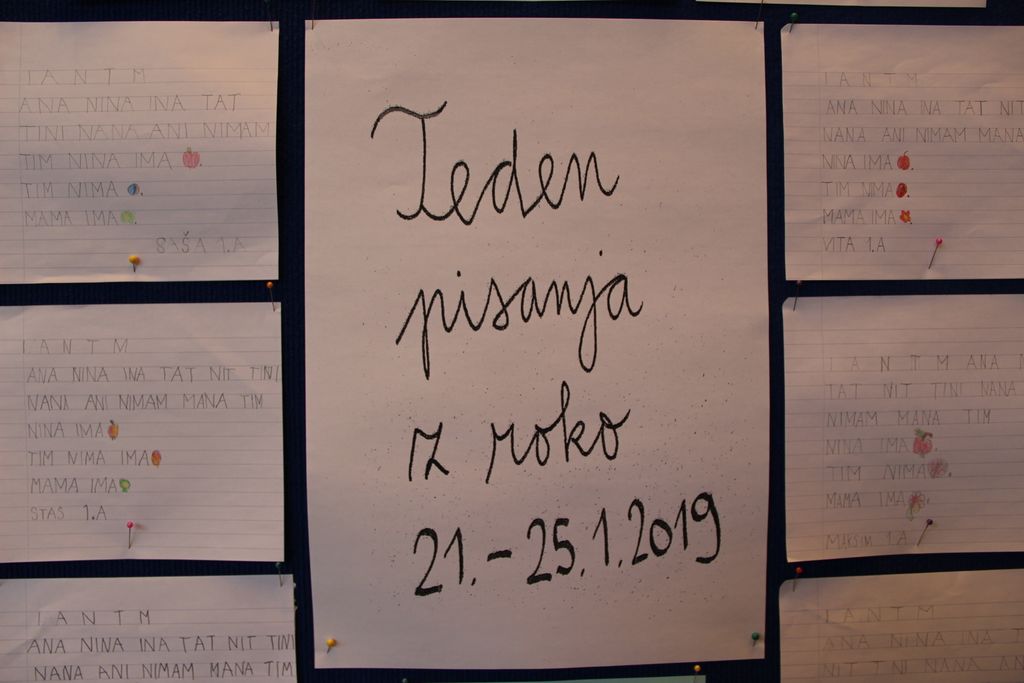 I A N T M
ANA NINA INA TAT
TINI NANA ANI NIMAM
TIM NINA IMA .
TIM NIMA .
MAMA IMA .
SAŠA 1.A
I A N T M
ANA NINA INA TAT NIT TINI
NANA ANI NIMAM MANA TIM
NINA IMA
TIM NIMA IMA .
MAMA IMA .
STAS 1.A
I A N T M
ANA NINA INA TAT NIT TINI
NANA ANI NIMAM MANA TIM
Teden
pisanja
z roko
21.-25.1.2019
I A N T M
ANA NINA INA TAT NIT
NANA ANI NIMAM MANA
NINA IMA .
TIM NIMA .
MAMA IMA .
VITA 1.A
I A N T M ANA
TAT NIT TINI NANA
NIMAM MANA TIM
NINA IMA .
TIM NIMA .
MAMA IMA .
MAKSIM 1.A
I A N T M
ANA NINA INA T
NIT TINI NANA AN